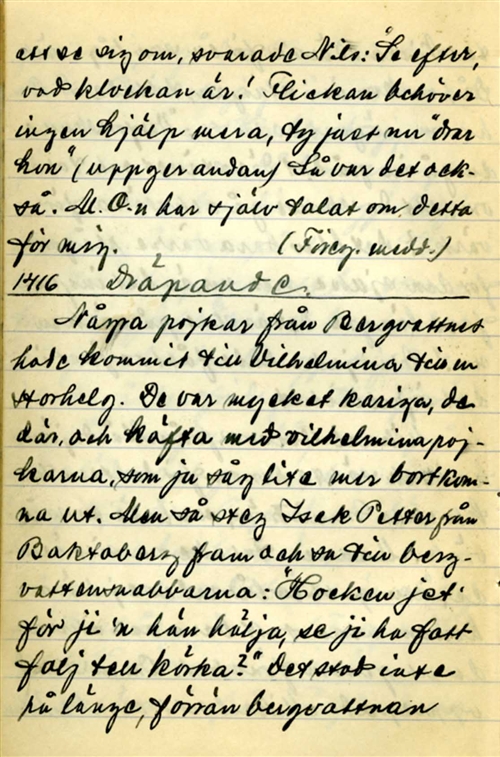 att se sig om, svarade Nils: "Se efter,
vad klockan är! Flickan behöver
ingen hjälp mera, ty just nu "drar
hon" (uppger andan) Så var det ock-
så. M. O-n har själv talat om detta
för mig. (Föreg. medd.)
1416 Dräpande.
Några pojkar från Bergvattnet
hade kommit till Vilhelmina till en
storhelg. De var mycket kariga, de
där, och käfta med vilhelminapoj-
karna, som ju såg lite mer bortkom-
na ut. Men så steg Isak Petter från
Baktaberg fram och sa till berg-
vattensnabbarna: "Hocken jet
för ji 'n hän hälja, se ji ha fått
följ tell körka?" Det stod inte
på länge, förrän bergvattnan